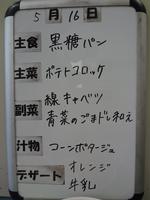 5月16日
主食 黒糖パン
主菜 ポテトコロッケ
副菜 線キャベツ
青菜のごまドレ和え
汁物 コーンポタージュ
デザート オレンジ
牛乳